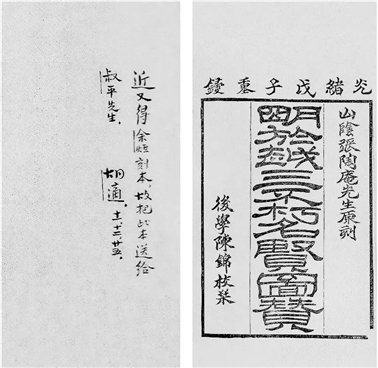 光緒戊子重鋟
山陰張陶庵先生原刻
明於越三不朽名賢圖贊
後學陳錦校栞
近又得余烜刻本,故把此本送給
叔平先生.
胡適. 廿五.